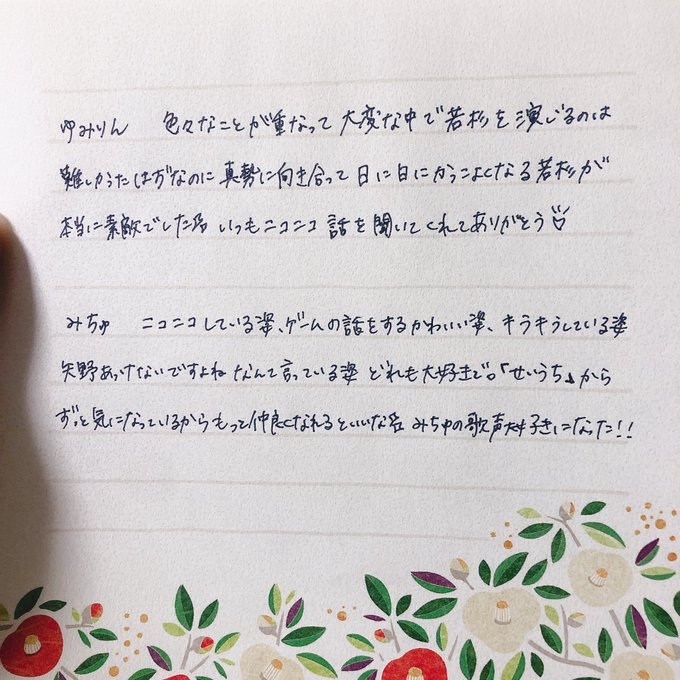 ゆみりん 色々なことが重なって大変な中で若杉を演じるのは
難しかったはずなのに真勢に向き合って日に日にかっこよくなる若杉が
本当に素敵でした いつもニコニコ話を聞いてくれてありがとう
みちゅ ニコニコしている姿、ゲームの話をするかわいい姿、キラキラしている姿
矢野あっけないですよねなんて言っている姿 どれも大好きで。「せいうち」から
ずっと気になっているからもっと仲良くなれるといいな みちゅの歌声大好きになった!!